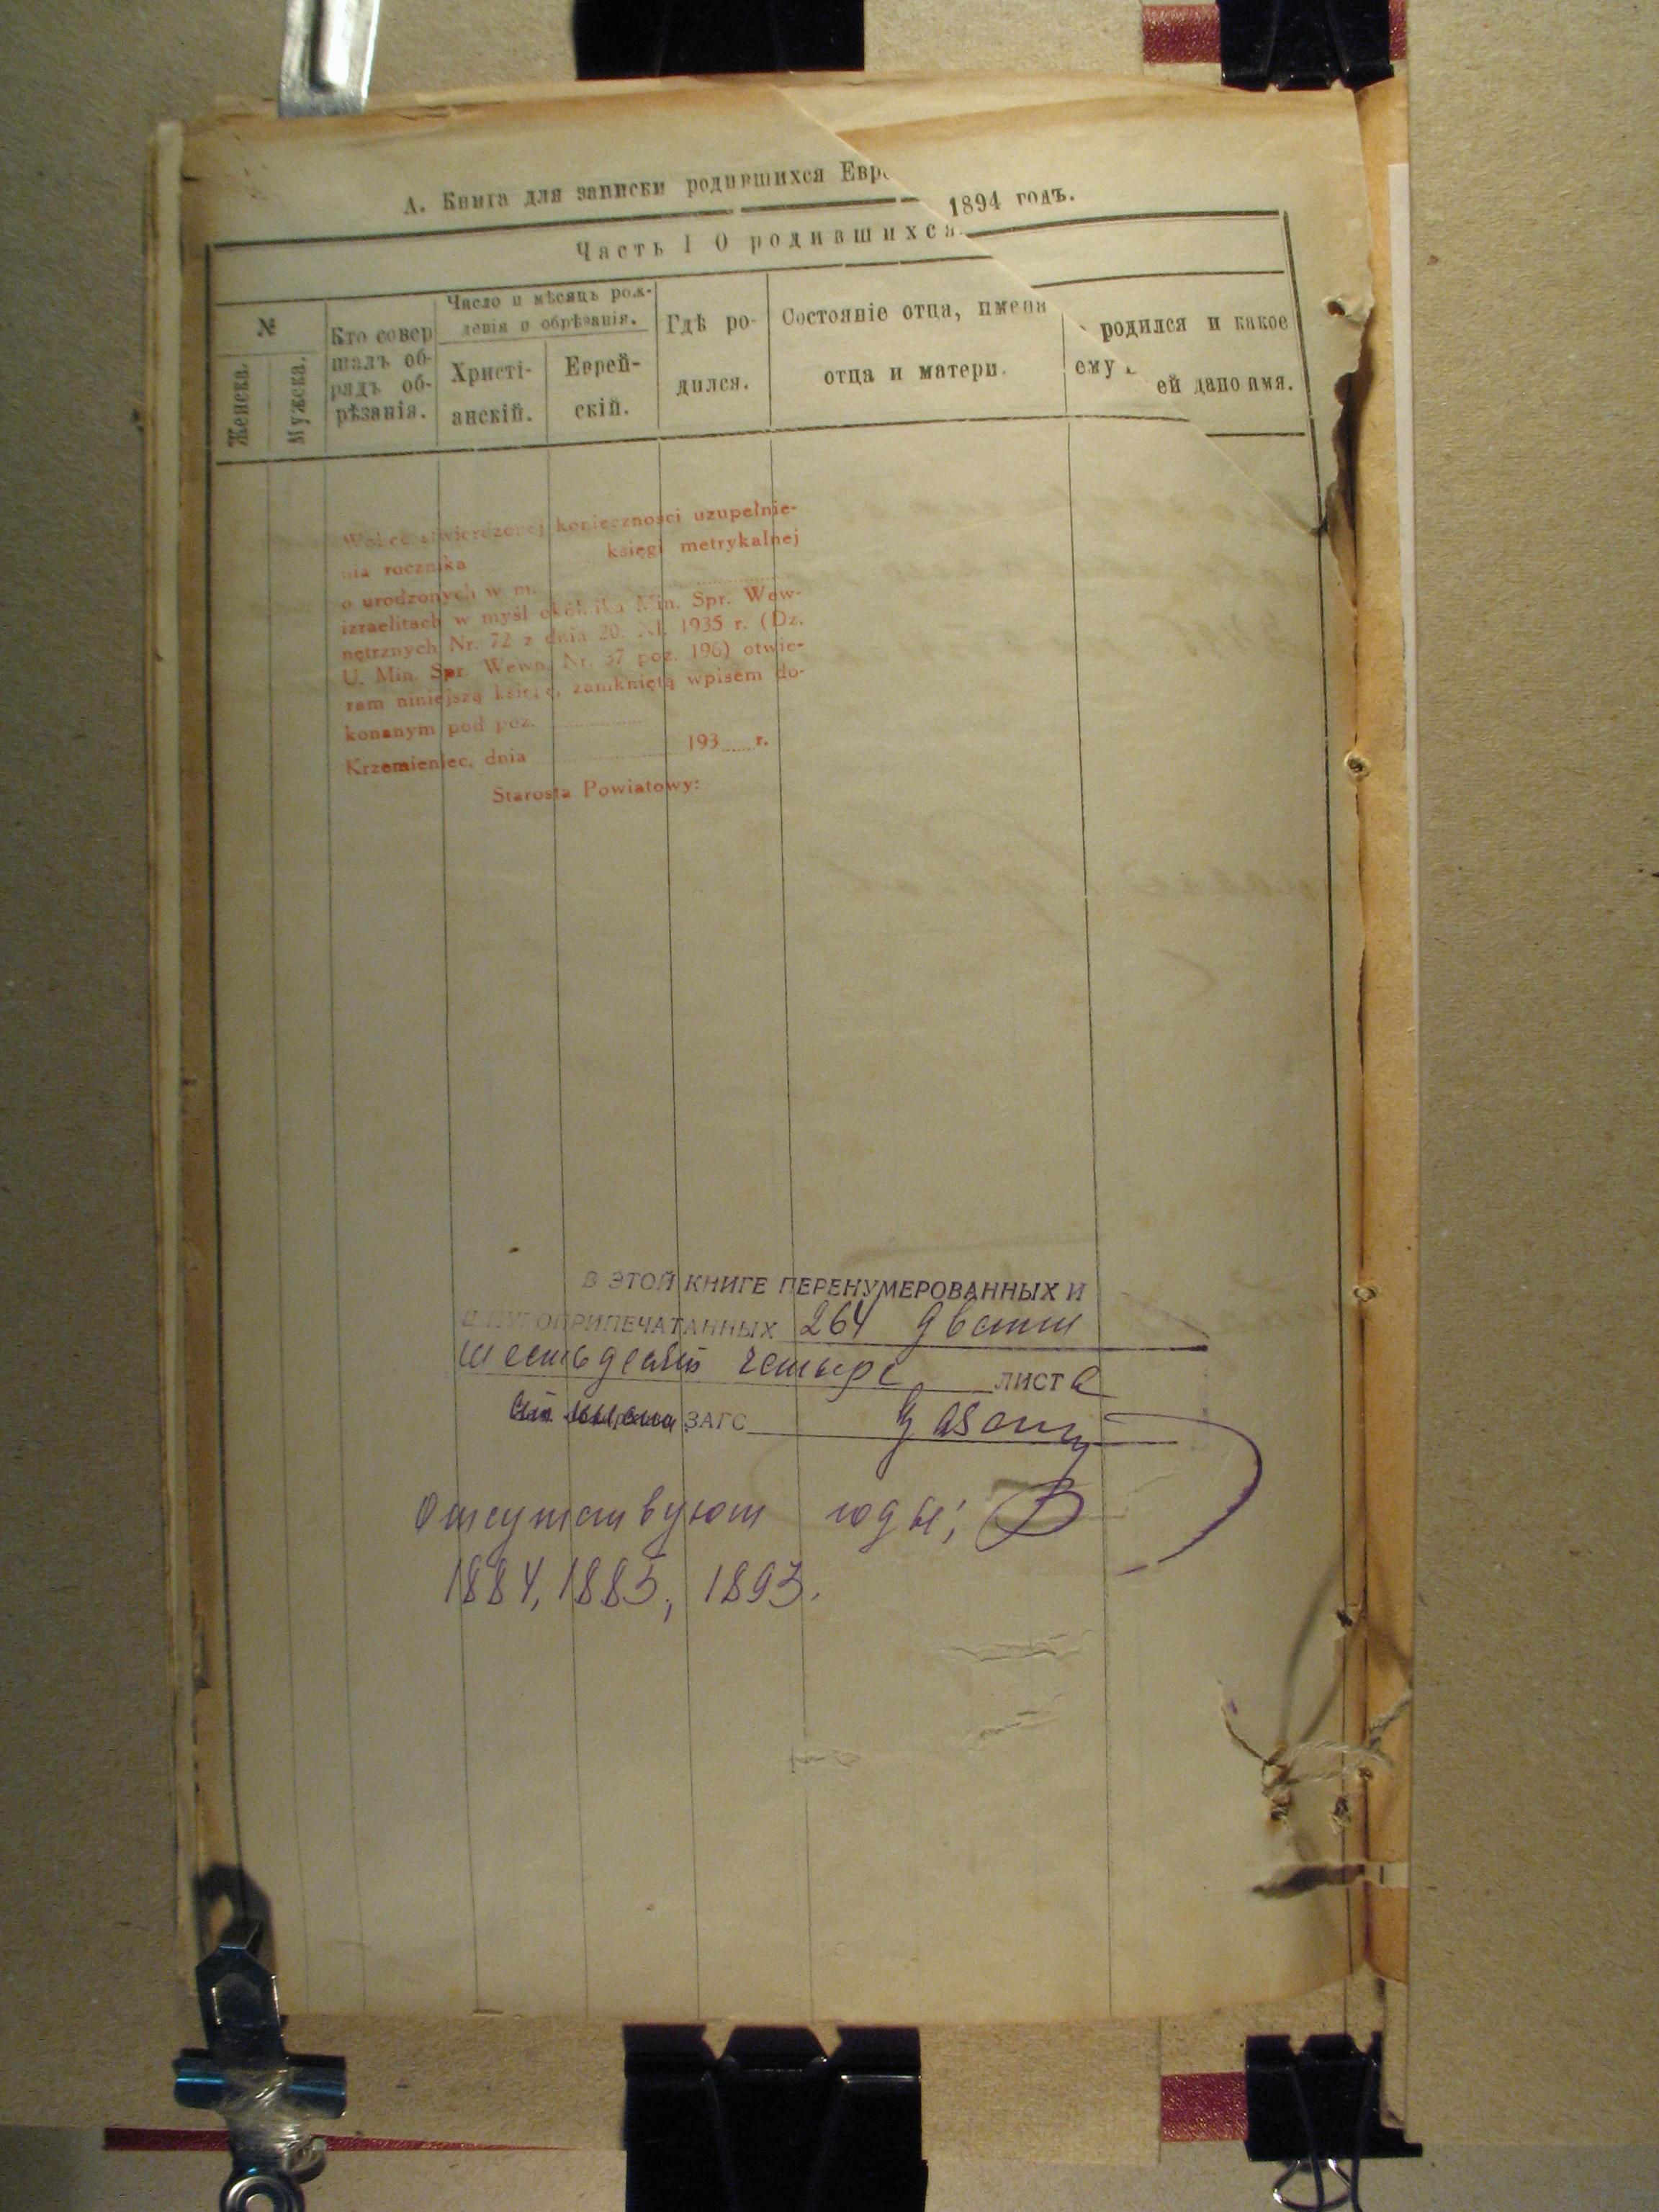 А. Книга для записки родившихся Евре
1894 годъ.
Часть I О родившихся
№
Женска.
Мужеска.
Кто совер
шалъ об-
рядъ об-
рѣзанія.
Число и мѣсяцъ рож-
денія и обрѣзанія.
Христі-
анскій.
Еврей-
скій.
Гдѣ ро-
дился.
Состояніе отца, имена
отца и матери.
родился и какое
ему
ей дано имя.
Wobec stwierdzonej konieczności uzupełnie-
nia rocznika księgi metrykalnej
o urodzonych w m.
izraelitach w myśl okólnika Min. Spr. Wew-
nętrznych Nr. 72 z dnia 20. XI. 1935 r. (Dz.
U. Min. Spr. Wewn. Nr. 37 poz. 196) otwie-
ram niniejszą księgę, zamkniętą wpisem do-
konanym pod poz.
Krzemieniec, dnia 193 r.
Starosta Powiatowy:
В ЭТОЙ КНИГЕ ПЕРЕНУМЕРОВАННЫХ И
ШНУРОПРИПЕЧАТАННЫХ 264 двести
шестьдесят четыре ЛИСТа
ЗАГС
Отсутствуют годы;
1884, 1885, 1893.